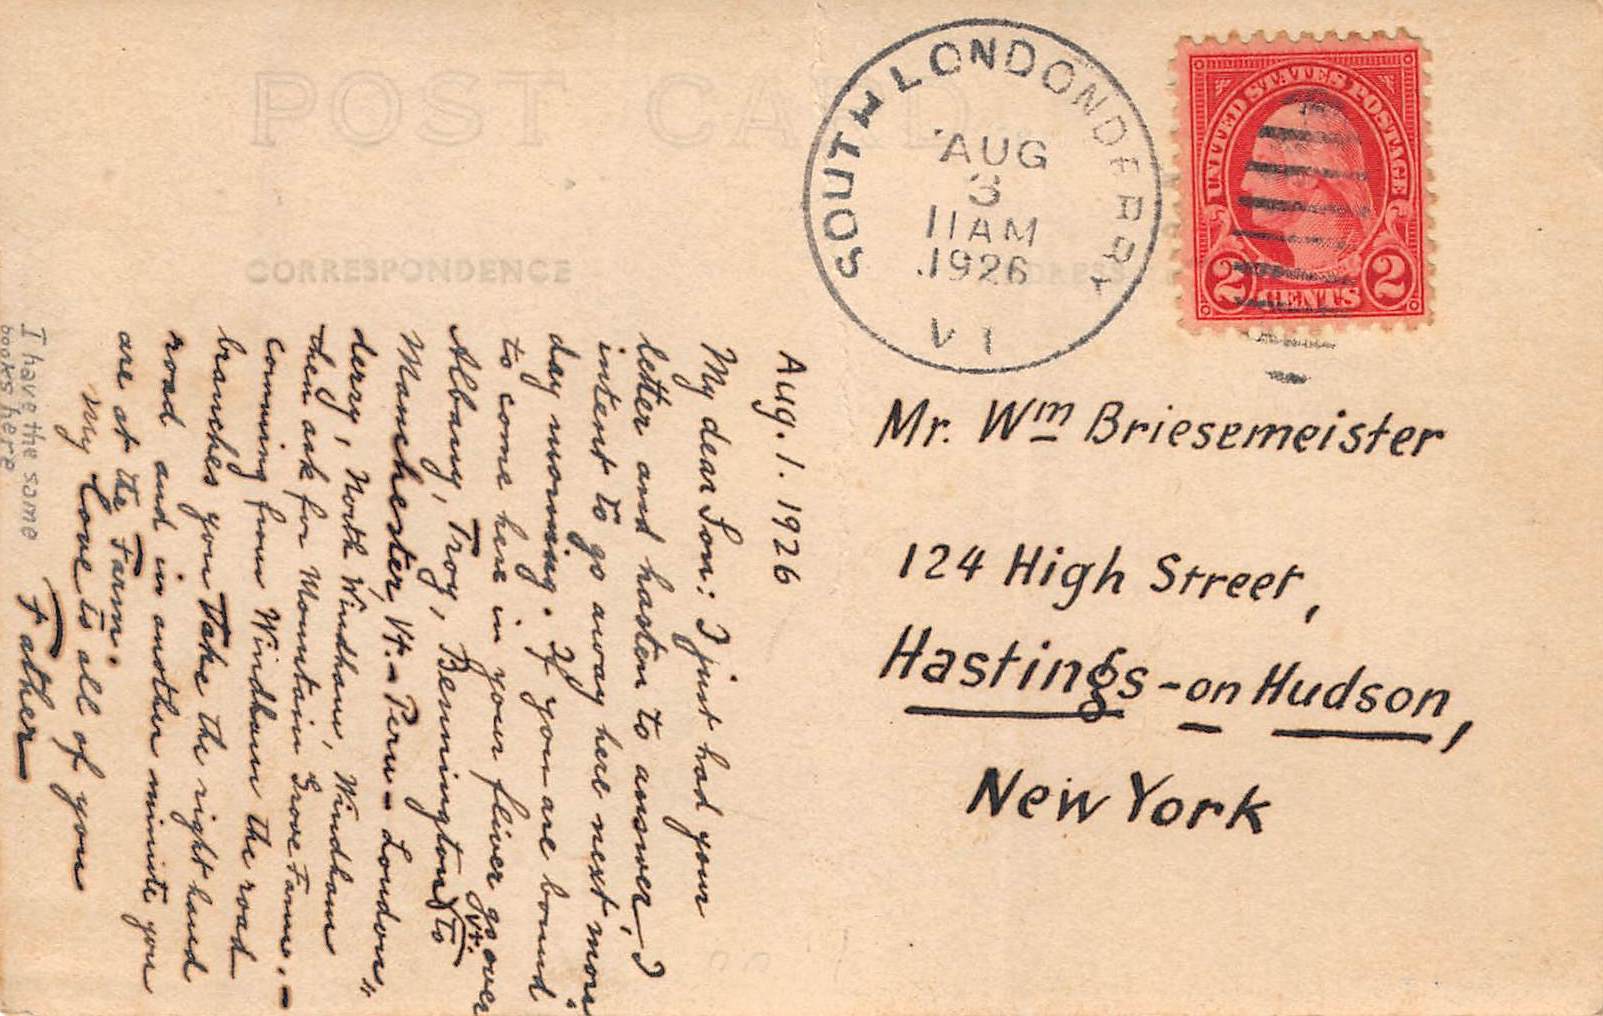 POST CARD
CORRESPONDENCE
ADDRESS
SOUTH LONDONDERRY
AUG
3
11 AM
1926
VT
UNITED STATES POSTAGE
2 CENTS 2
Mr. Wm Briesemeister
124 High Street,
Hastings-on Hudson,
New York
Aug. 1. 1926
My dear Son: I just had your
letter and hasten to answer, I
intent to go away here next mon
day morning. If you are bound
to come here in your fliver go over
Albany, Troy, Bennington Vt. to
Manchester, Vt. - Peru - London„
derry, North Windham, Windham
then ask for Mountain Grove Farm. -
Comming from Windham the road
branches you Take the right hand
road and in another minute you
are at the Farm.
My Love to all of you
Father
I have the same
books here